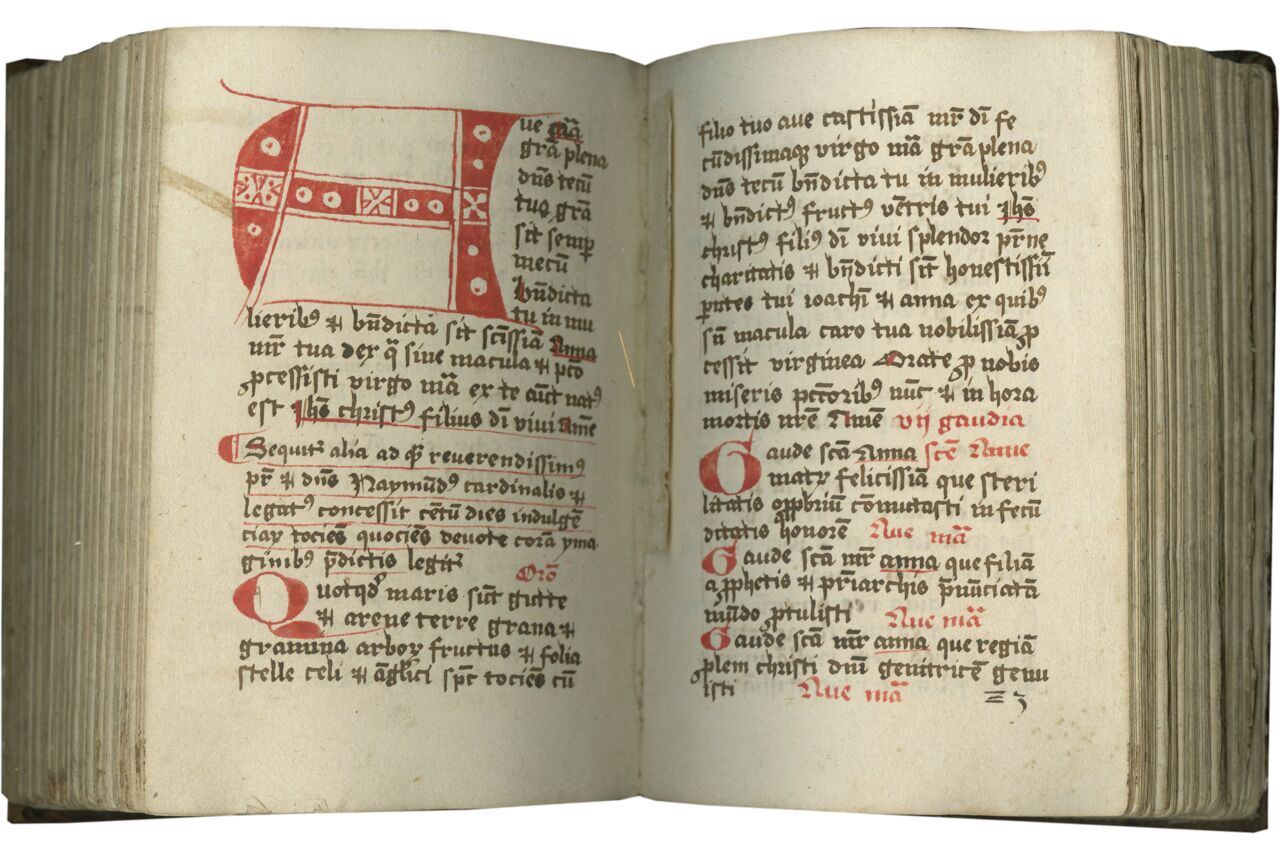 Aue mīa
grā plena
dn̄s tecū
tua grā
sit semꝑ
mecū
bn̄dicta
tu in mu
lieribꝰ ⁊ bn̄dicta sit scīssīa Anna
mr̄ tua de qᷓ sine macula ⁊ pcc̄o
ꝓcessisti virgo mīa ex te aut̄ natꝰ
est Ihs̄ christꝰ filius dī viui Amē
Sequit᷑ alia ad qᷓ reuerendissimꝰ
pr̄ ⁊ dn̄s Raymūdꝰ cardinalis ⁊
legatꝰ concessit cētū dies indulgē
ciaꝝ tociēs quociēs deuote corā yma
ginibꝰ p̄dictis legit᷑
Orō
Quotqd̕ maris sūt gutte
⁊ arene terre grana ⁊
gramina arboꝝ fructus ⁊ folia
stelle celi ⁊ āglici sp̄c tociēs cū
filio tuo aue castissīā mr̄ dī fe
cūdissimaqꝫ virgo mīa grā plena
dn̄s tecū bn̄dicta tu in mulieribꝰ
⁊ bn̄dictꝰ fructꝰ vētris tui Ihs̄
christꝰ filiꝰ dī viui splendor pr̄ne
charitatis ⁊ bn̄dicti sīt honestissīī
ꝑntes tui ioachī ⁊ anna ex quibꝰ
sn̄ macula caro tua nobilissīa ꝓ
cessit virginea Orate ꝓ nobis
miseris pctōribꝰ nūc ⁊ in hora
mortis nr̄e Amē vij gaudia
Gaude scā Anna scē Anne
matꝝ felicissīa que steri
litatis oꝓbriū cōmutasti in fecū
ditatis honorē Aue mīa
Gaude scā mr̄ anna que filiā
a ꝓphetis ⁊ pr̄iarchis p̄nūciatā
mūdo ꝓtulisti Aue mīa
Gaude scā mr̄ anna que regiā
ꝓlem christi dnī genitricē genu
isti Aue mīa